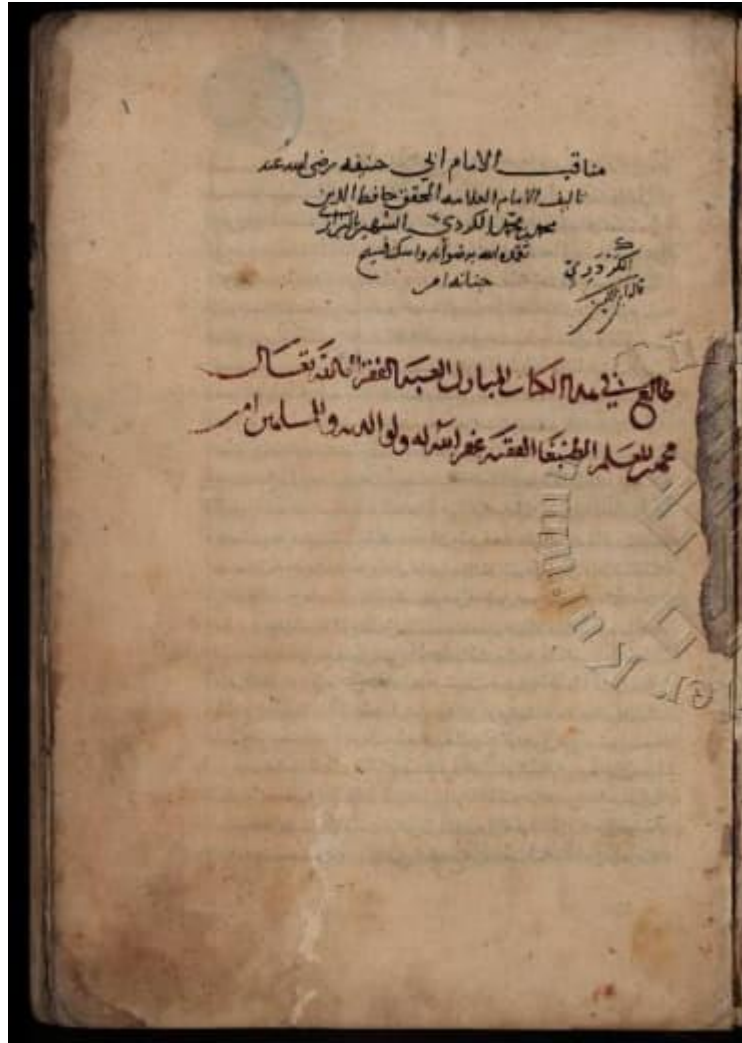 مناقب الامام ابي حنيفه رضي الله عنه
تاليف الامام العلامه المحقق حافظ الدين
محمد بن محمد الكردي الشهير بالبزازي
تغمده الله برضوانه واسكنه فسيح
جنانه امين
الكردري
طالع في هذا الكتاب المبارك العبد الفقير الى الله تعالى
محمد المعلم الطنبغا الفقيه غفر الله له ولوالديه والمسلمين امين